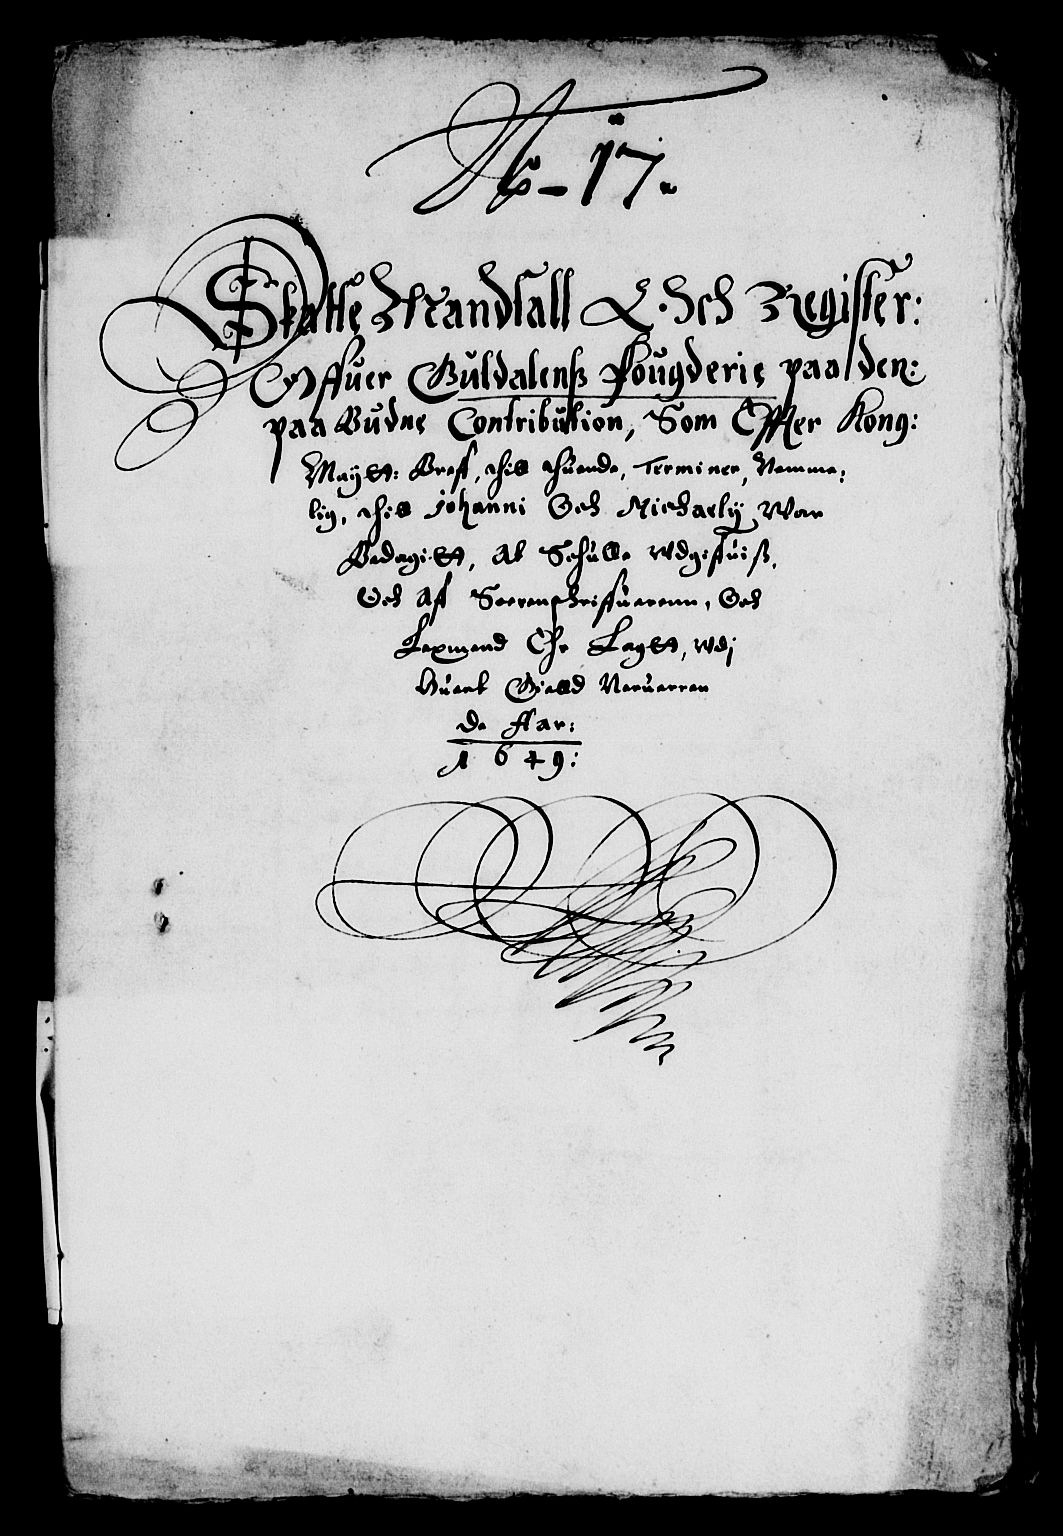 No– 17.
Skatte Mandtall Och Register:
Offuer Guldalenß Fougderie paa den:
paa Budne Contribution, Som Effter Kong:
May:tt: Breff, thill thuende, Terminer, Nemme,
lig, thill Johanni Och Michaelij War
Bedagett, At Schulle wdgiffuiß,
Och Aff Soerenschriffuerenn, Och
Laxmend Ehr Lagtt, wdj
Huert Gield Neruerren
de Aar:
1649: